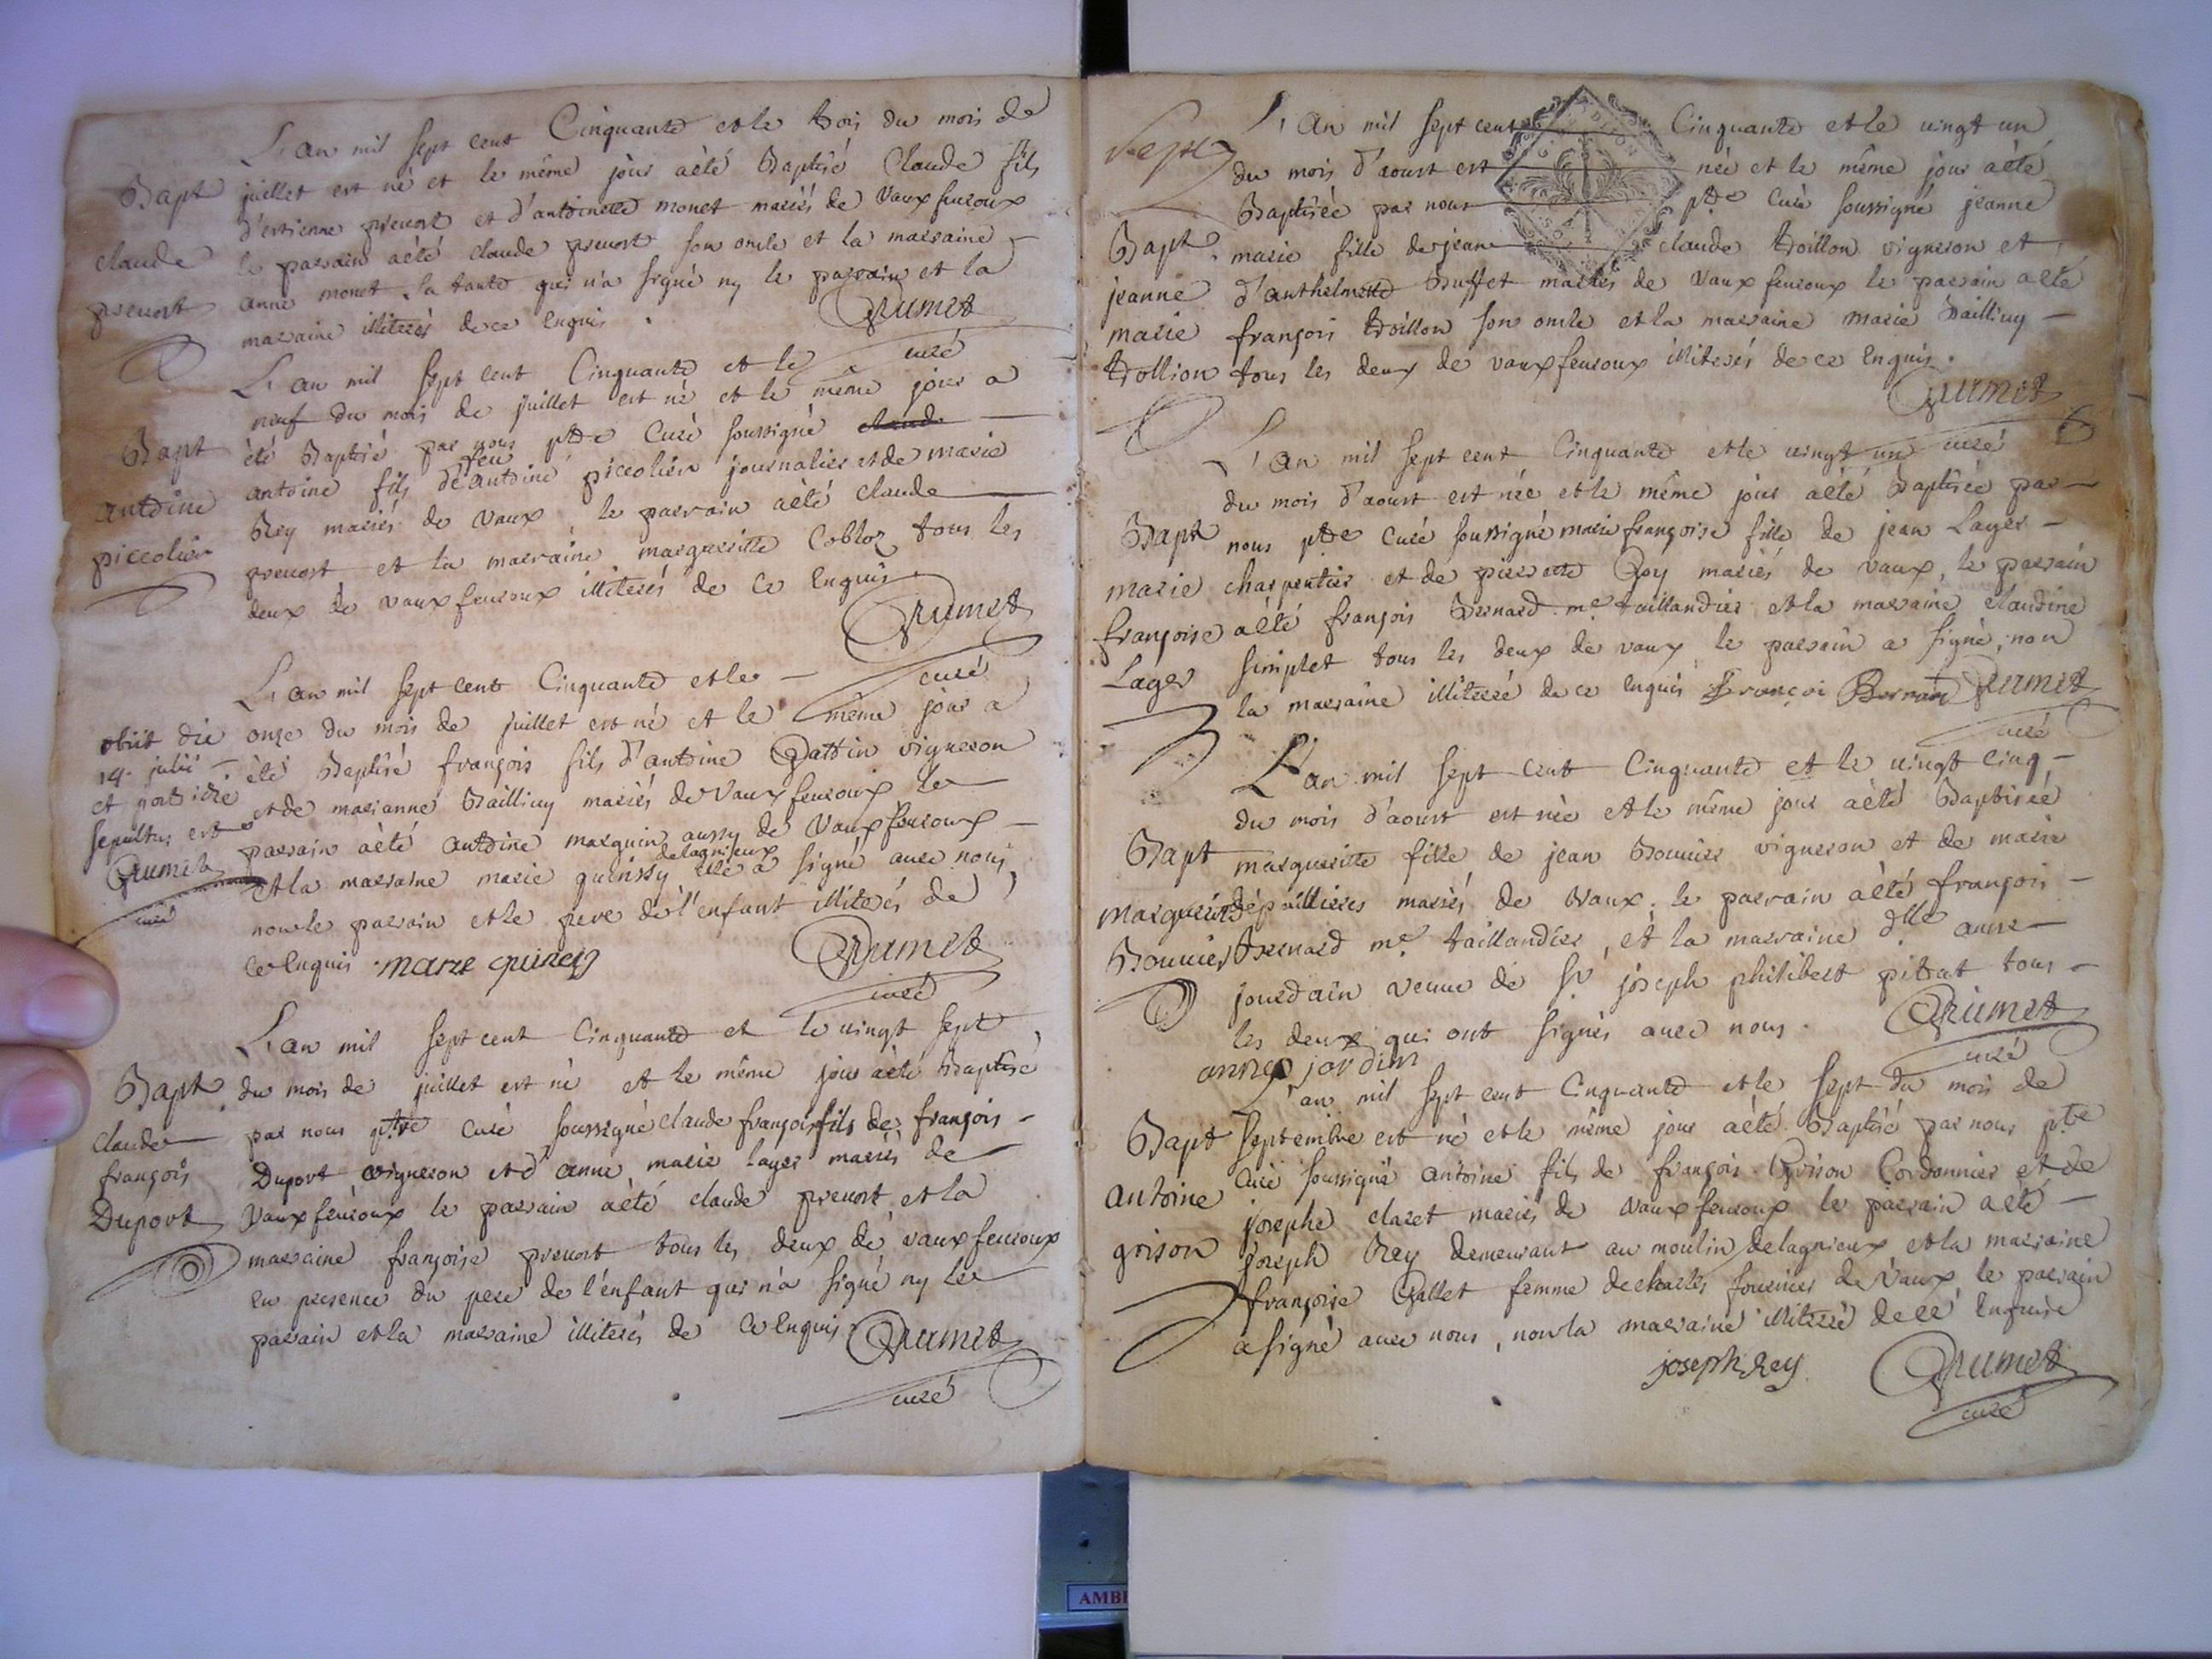 L'an mil sept cent Cinquante et le trois du mois de
Bapt juillet est né et le même jour aèté Baptisé Claude fils
d'estienne preuost et d'antoinette monet mariés de Vaux feuroux
claude le parrain aèté claude preuost son oncle et la marraine
preuost anne monet sa tante qui n'a signé ny le parrain et la
marraine illiterés de ce Enquis. Grumet
curé
L'an mil sept cent Cinquante et le
neuf du mois de juillet est né et le même jour a
Bapt èté Baptisé par nous ptre Curé soussigné claude
antoine antoine fils de feu antoine piccolier journalier et de marie
Rey mariés de Vaux, le parrain aèté claude
piccolier preuost et la marraine margueritte Cobloz tous les
deux de vaux feuroux illiterés de Ce Enquis
Grumet
curé
L'an mil sept cent Cinquante et le
obiit die onze du mois de juillet est né et le même jour a
14. julii èté Baptisé françois fils d'antoine Gattin vigneron
et postridie et de marianne Bailliuy mariés de Vaux feuroux le
sepultus est parrain aèté antoine marguin aussy de Vaux feuroux
Grumet et la marraine marie quinssy delagnieux a signé auec nous
curé non le parrain et le pere de l'enfant illiterés de
Ce Enquis. marie quincy Grumet
curé
L'an mil sept cent Cinquante et le vingt sept
Bapt du mois de juillet est né et le même jour aèté Baptisé
claude par nous ptre Curé soussigné claude françois fils de françois
françois Duport vigneron et d'anne marie layer mariés de
Duport Vaux feuroux le parrain aèté claude preuost et la
marraine françoise preuost tous les deux de vaux feuroux
en presence du pere de l'enfant qui n'a signé ny le
parrain et la marraine illiterés de Ce Enquis Grumet
curé
sept
L'an mil sept cent Cinquante et le uingt un
du mois d'aoust est née et le même jour aèté
Baptisée par nous ptre Curé soussigné jeanne
Bapt. marie fille de jean claude troillon vigneron et
jeanne d'anthelmette Buffet mariés de Vaux feuroux le parrain aèté
marie françois troillon son oncle et la marraine marie Bailliuy
trollion tous les deux de vaux feuroux illiterés de ce Enquis.
Grumet
curé
L'an mil sept cent Cinquante et le uingt un
du mois d'aoust est née et le même jour aèté Baptisée par
Bapt nous ptre Curé soussigné marie françoise fille de jean Layer
marie charpentier et de pierrette Roy mariés de vaux, le parrain
françoise aèté françois Bernard me taillandier et la marraine claudine
Layer simplet tous les deux de vaux le parrain a signé, non
la marraine illiterée de ce Enquis françoi Bernard Grumet
curé
L'an mil sept cent Cinquante et le uingt cinq
du mois d'aoust est née et le même jour aèté Baptisée
Bapt margueritte fille de jean Bouuier vigneron et de marie
margueritte dépaillieres mariés de Vaux. le parrain aèté françois
Bouuier Bernard me taillandier, et la marraine dlle anne
jourdain veuue de Sr joseph philibert pitrat tous
les deux qui ont signés auec nous. Grumet
anne jordin curé
L'an mil sept cent Cinquante et le sept du mois de
Bapt septembre est né et le même jour aèté Baptisé par nous ptre
antoine Curé soussigné antoine fils de françois Grison Cordonnier et de
josephe claret mariés de Vaux feuroux le parrain aèté
grison joseph Rey demeurant au moulin delagnieux et la marraine
françoise Gallet femme de charles fournier de Vaux le parrain
a signé auec nous, non la marraine illiterée de ce Enquise
joseph Rey Grumet
curé
AMB